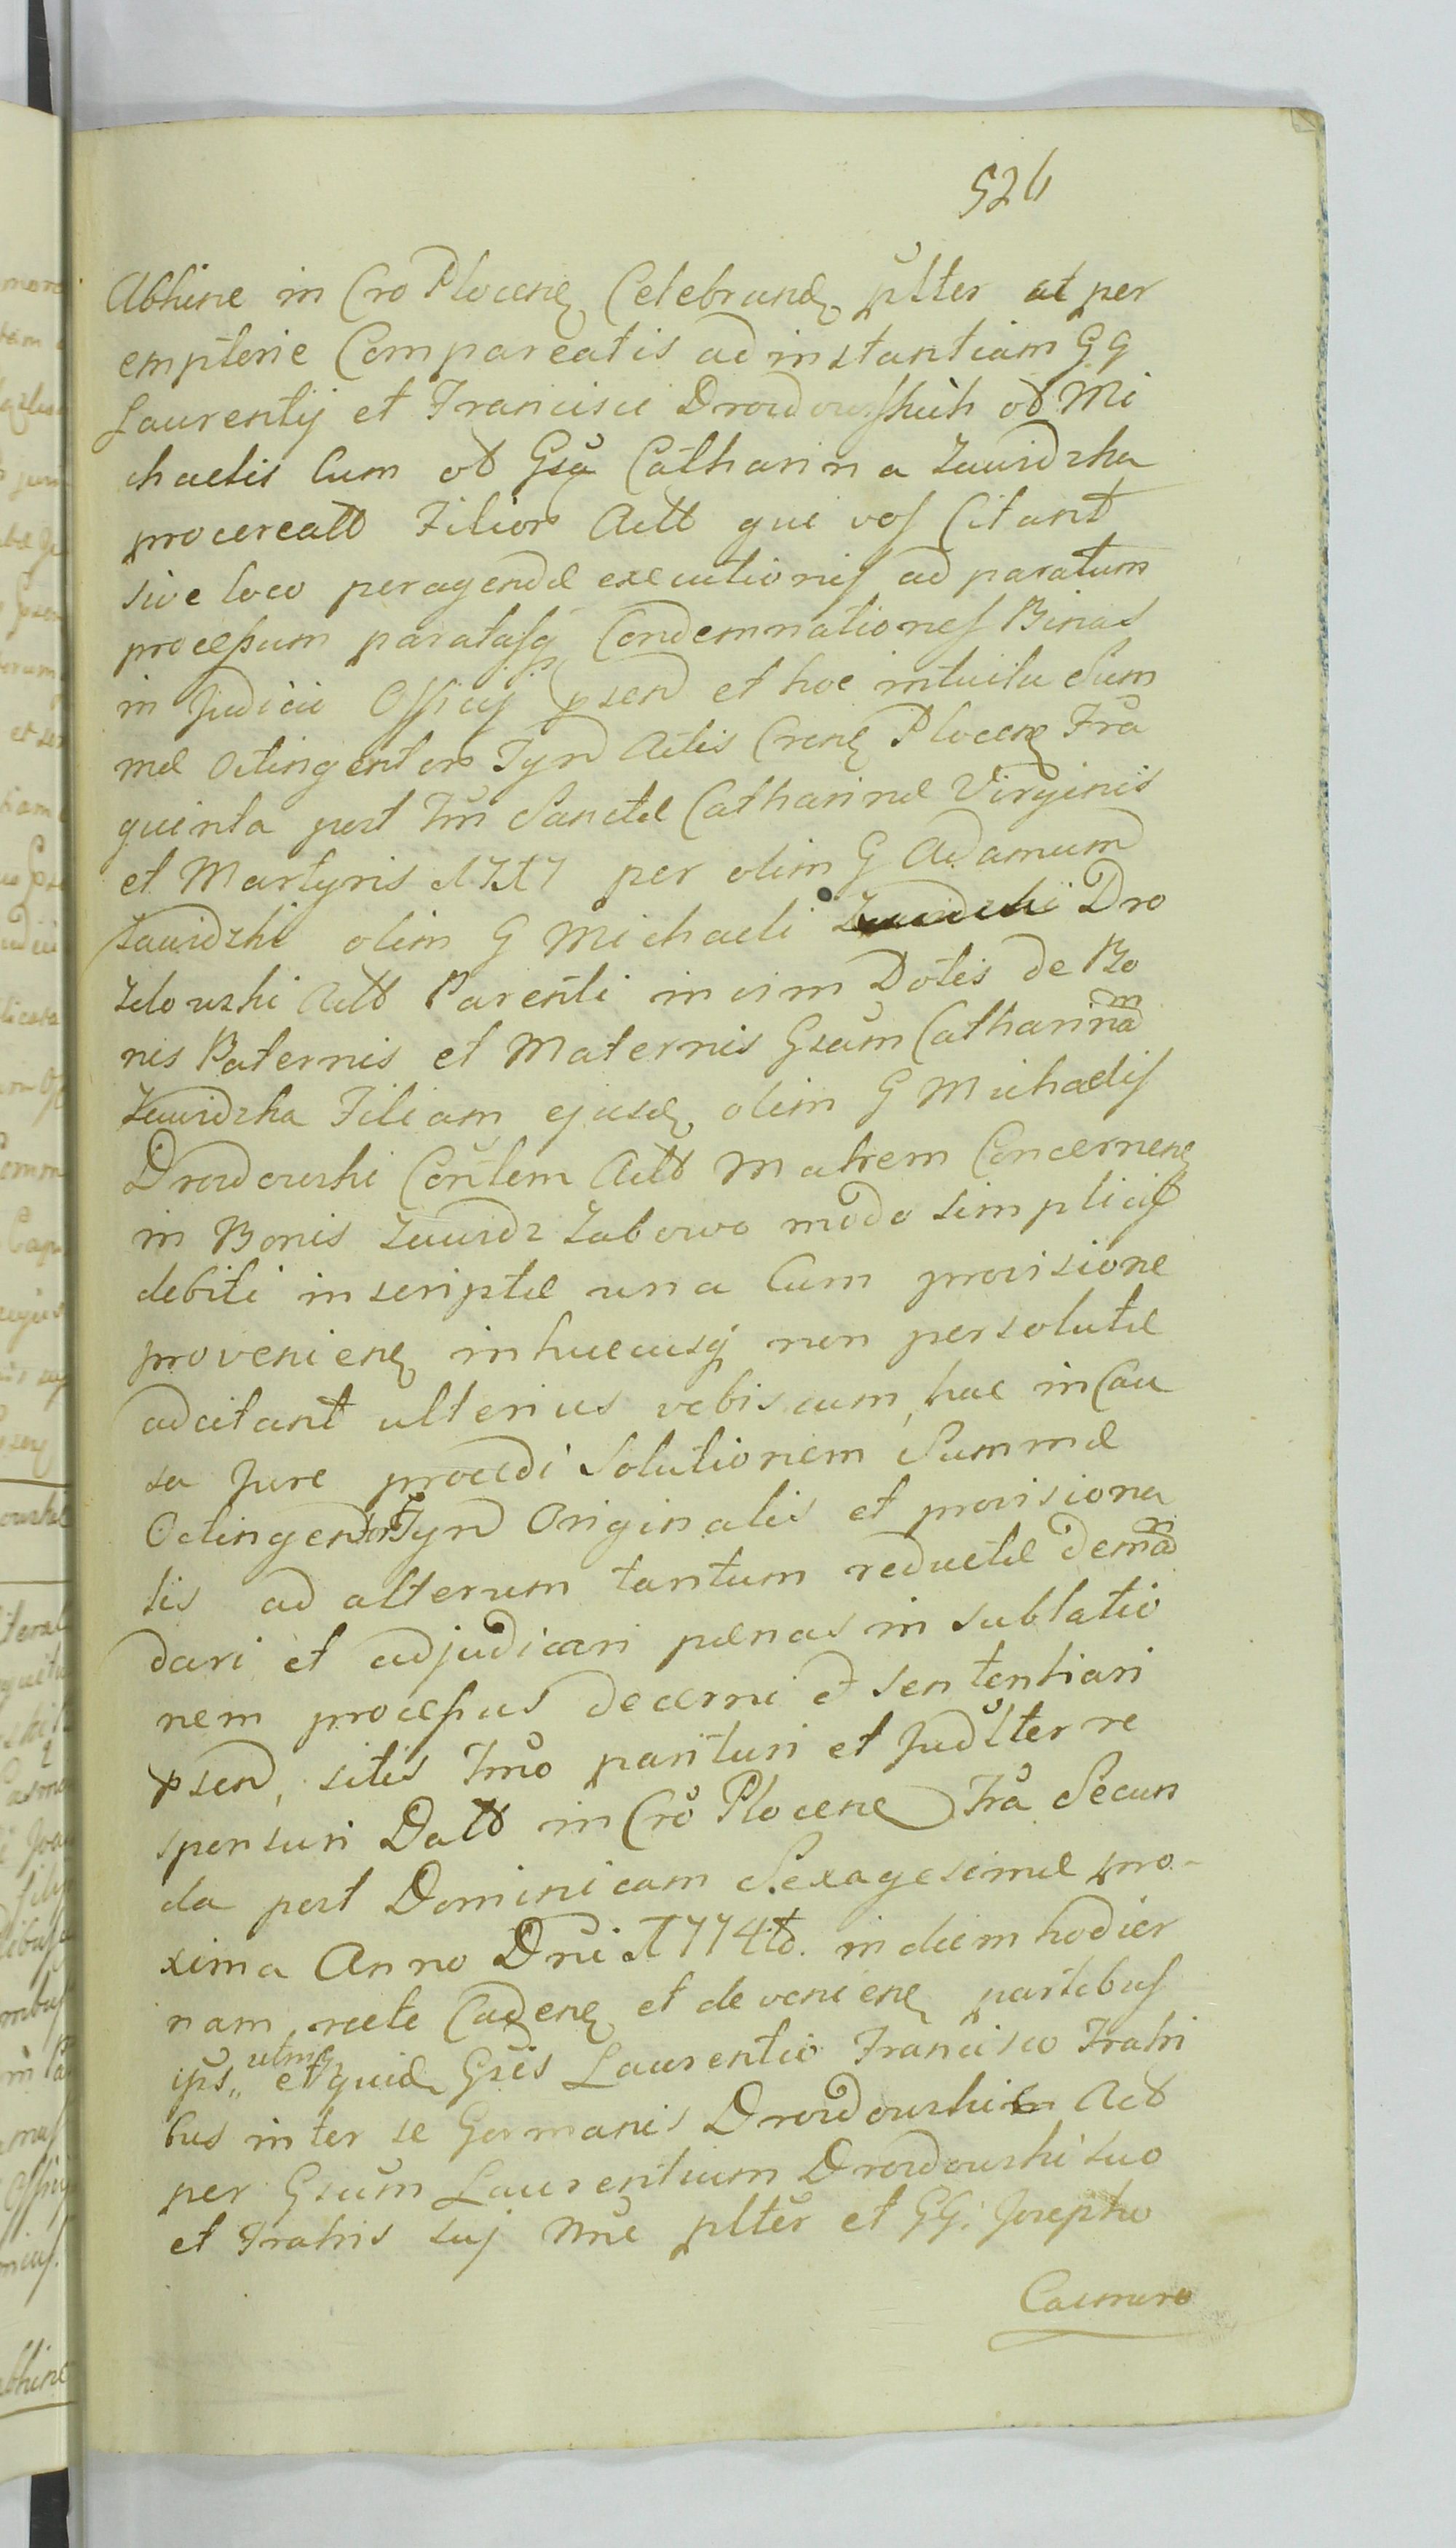 526
Abhine in Cro Plocen Celebrand plter et per
emptorie Compareatis ad instantiam GG
Laurentij et Francisci Drozdowskich ol Mi
chaelis Cum ol Gsa Catharina Zawidzka
procereatt Filior Actt qui vos Citant
sive loco peragendæ executionis ad paratum
processum paratasq Condemnationes Binas
in Judicii Officij psen et hoc intuitu Sum
mæ Octingentor Tyn Actis Cren Plocen Fra
quinta post Fm Sanctæ Catharinæ Virginis
et Martyris 1717 per olim G Adamum
Zawidzki olim G Michaeli Dro
zdowski Actt Parenti in vim Dotis de Bo
nis Paternis et Maternis Gsam Catharinam
Zawidzka Filiam ejusd olim G Michaelis
Drozdowski Contem Actt Matrem Concernen
in Bonis Zawidz Zabowo modo simplicis
debiti inscriptæ una Cum provisione
provenien inhucusq non persolutæ
adcitant ulterius vobiscum hac in Cau
sa Jure procedi Solutionem Summæ
Octingentor Tyn Originalis et provisiona
lis ad alterum tantum reductæ deman
dari et adjudicari pænas in sublatio
nem processus decerni et sententiari
psen, sitis Fmo parituri et Judlter re
sponsuri Datt in Cro Plocen Fra Secun
da post Dominicam Sexagesimæ pro-
xima Anno Dni 1774to. in diem hodier
nam recte Caden et devenien partibus
ips,, utmq et quid Gsis Laurentio Francisco Fratri
bus inter se Germanis Drozdowskich Act
per Gsum Laurentium Drozdowski suo
et Fratris suj nne plter et GG: Josepho
Casimiro